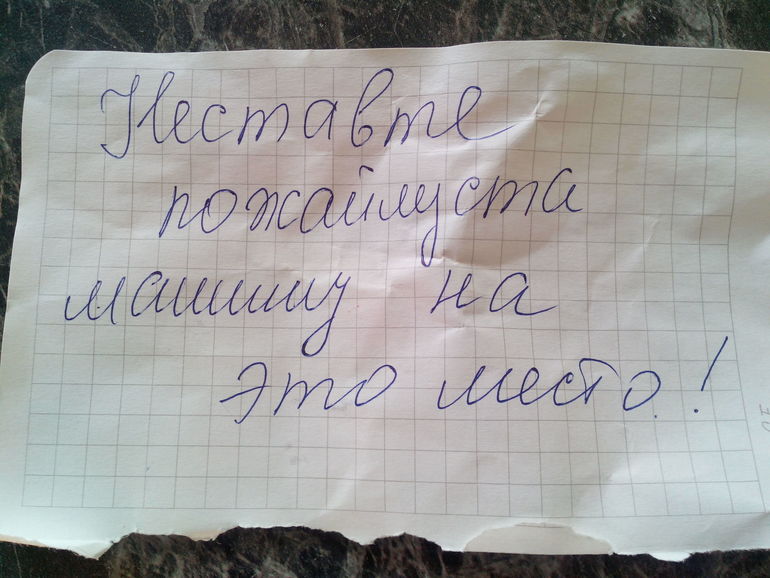 Неставте
пожайлуста
машину на
это место!